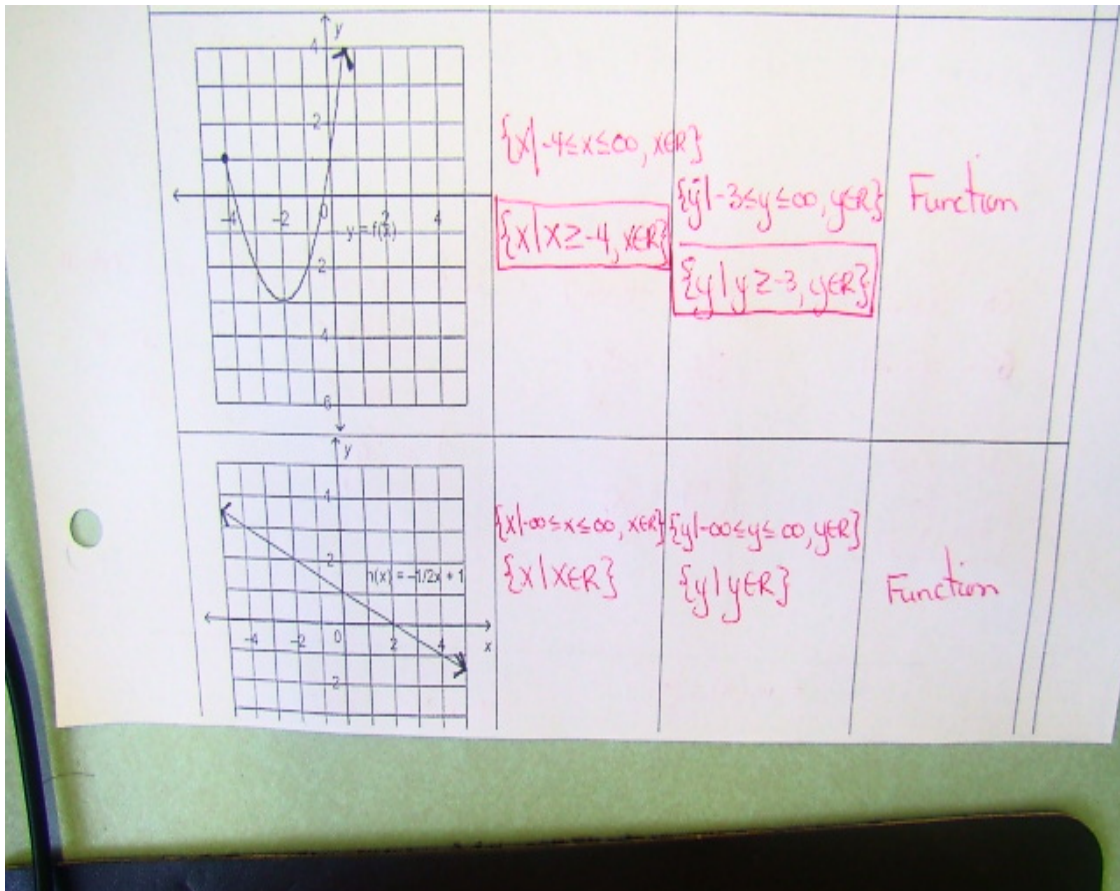 y
4
2
-4 -2 0 2 4
y = f(x)
2
4
6
{x|-4≤x≤∞, x∈R}
{x|x≥-4, x∈R}
{y|-3≤y≤∞, y∈R}
{y|y≥-3, y∈R}
Function
y
4
2
h(x) = -1/2x + 1
-4 -2 0 2 4 x
2
{x|-∞≤x≤∞, x∈R}
{x|x∈R}
{y|-∞≤y≤∞, y∈R}
{y|y∈R}
Function